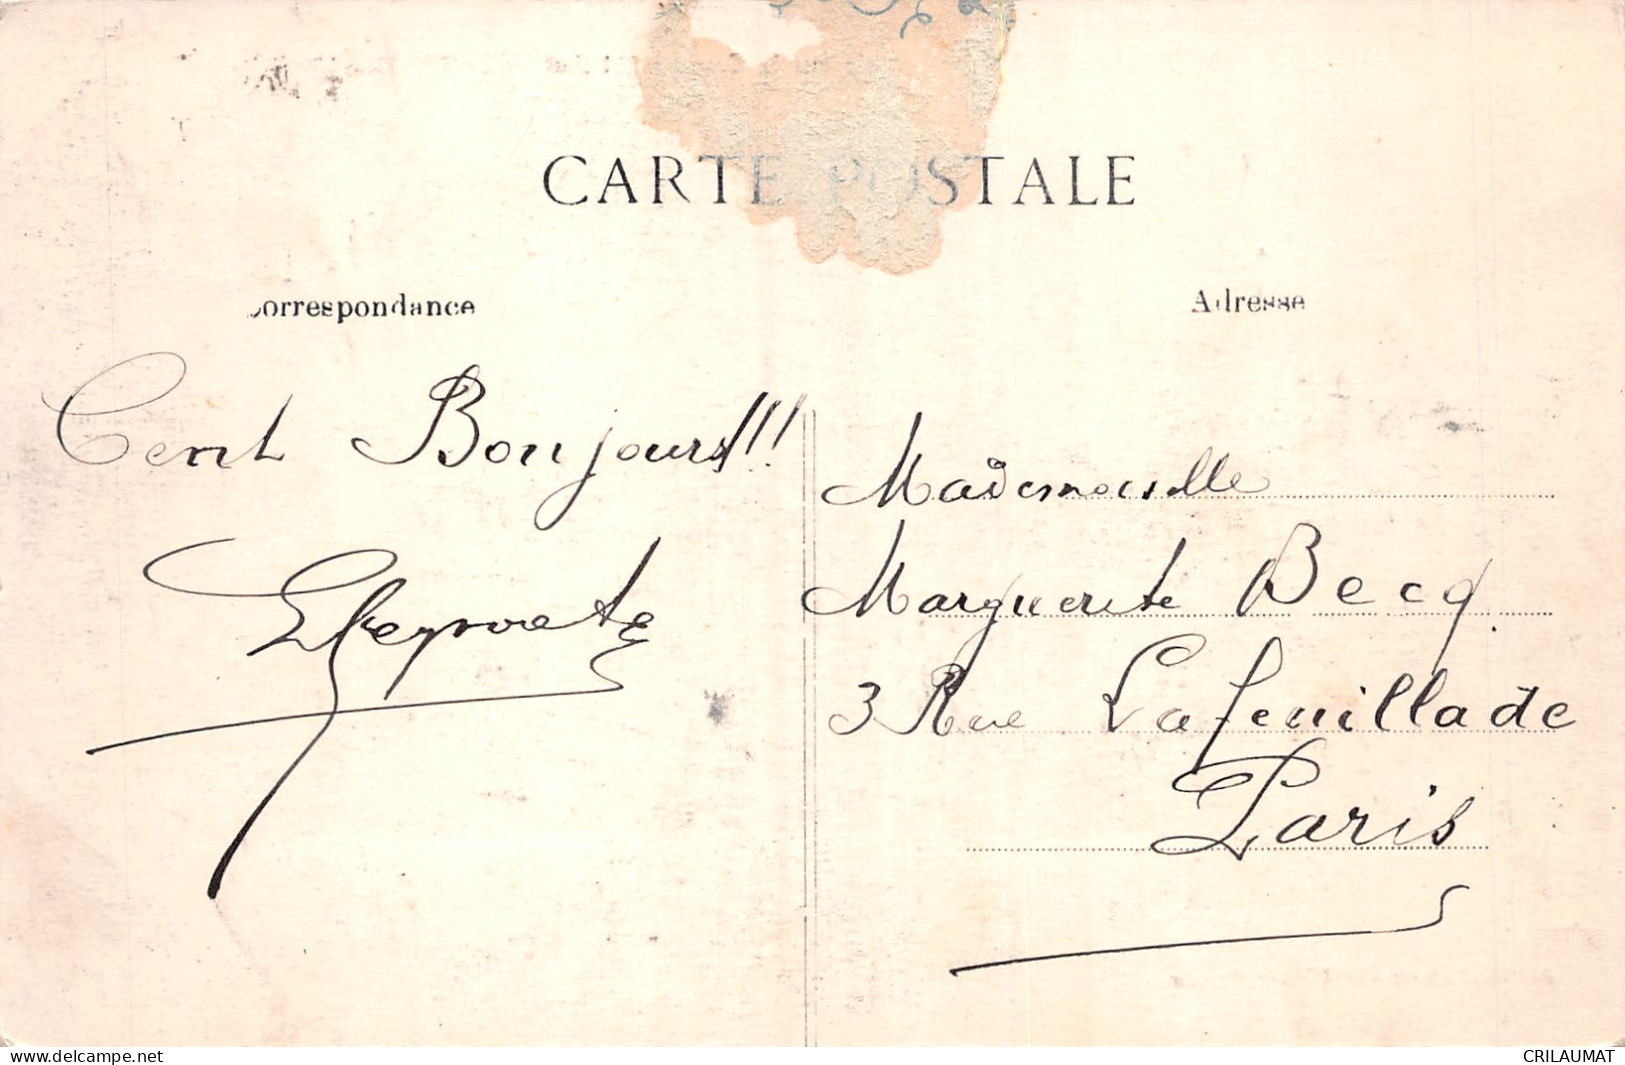 CARTE POSTALE
Correspondance
Adresse
Cent Bonjours!!!
Mademoiselle
Marguerite Becq.
3 Rue La feuillade
Paris
www.delcampe.net
CRILAUMAT